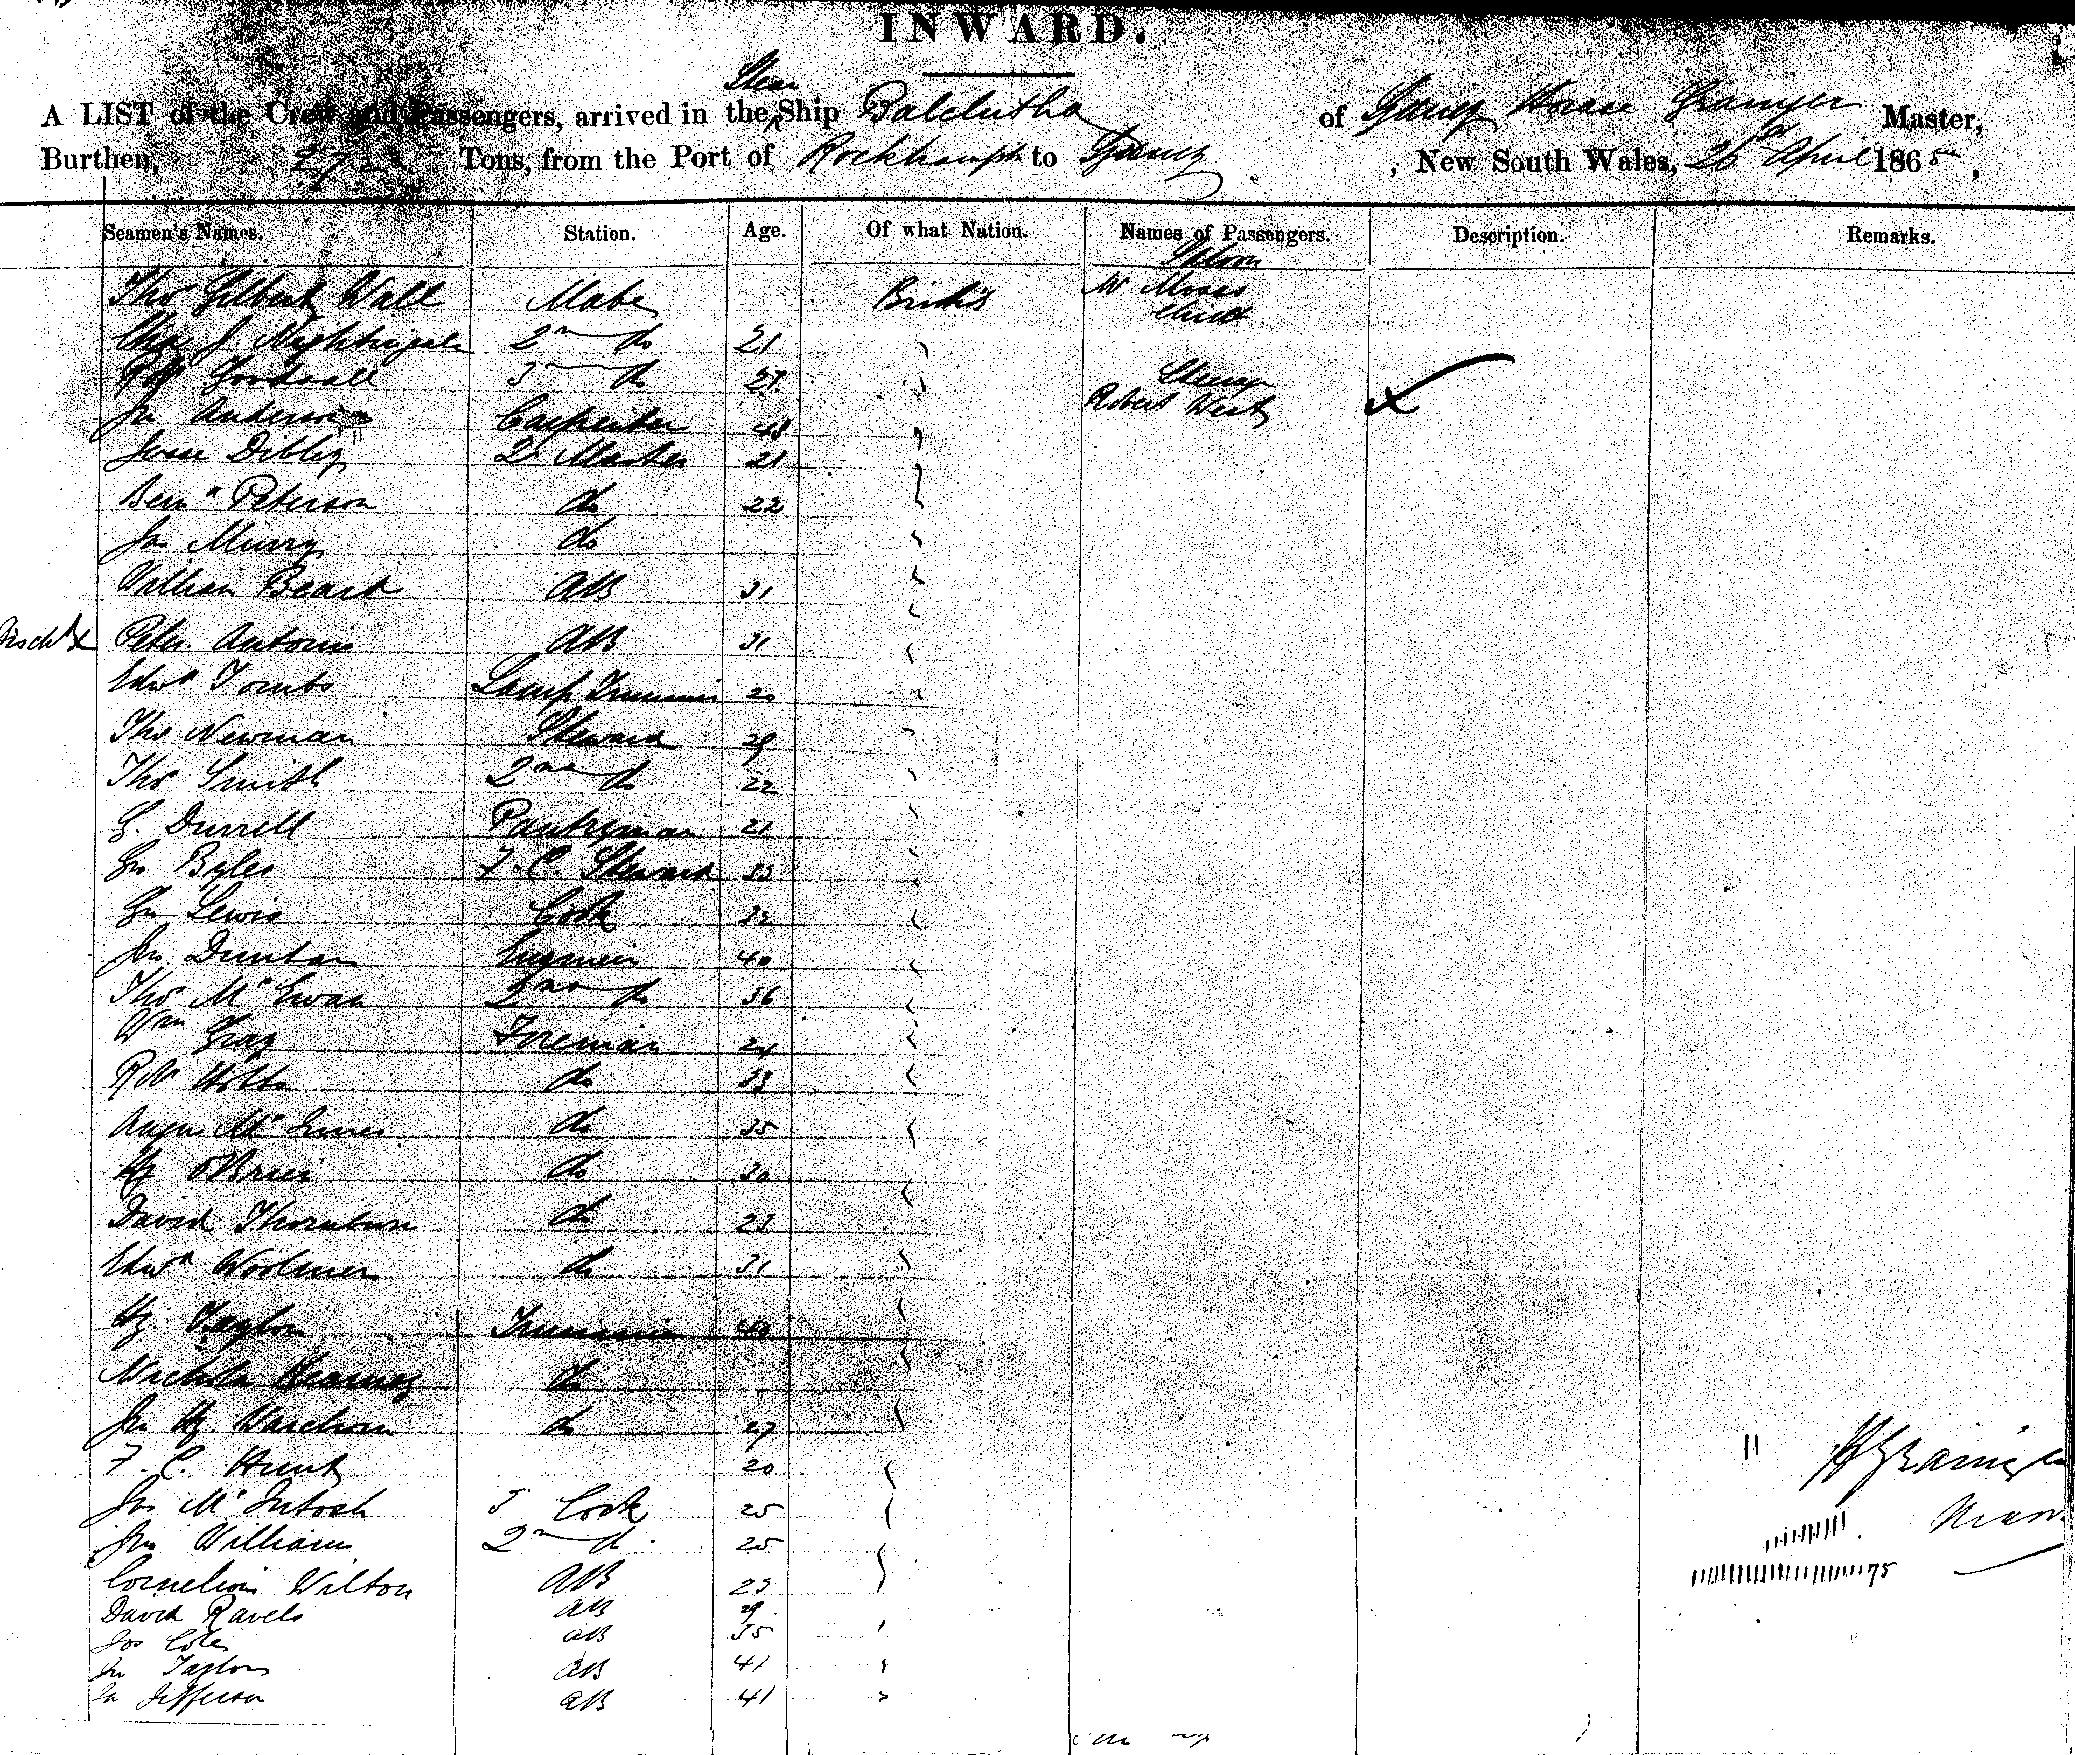 INWARD.
Steam
A LIST of the Crew and Passengers, arrived in the Ship Balclutha of Sydney Grainger Master,
Burthen, 272 Tons, from the Port of Rockhampt to Sydney , New South Wales, 26 April 1865,
Seamen's Names. Station. Age. Of what Nation. Names of Passengers. Description. Remarks.
Saloon
Thos Gilbert Wall Mate British Mr Moses
Child
J Nightingale 2nd do 21
Goodsall 3rd do
Steerage
Jn Anderson Carpenter 43 Robert West
Dibley Qr Master 21
Benn Peterson do 22
Jn Murry do
William Beard AB 31
Peter Antonio AB 31
Edwd Tombs Lamp Trimmer 20
Thos Newman Steward 29
Thos Smith 2nd do 22
G. Durrell Pantryman 21
Jn Byles F. C. Steward 33
Jn Lewis Cook 32
Jn Dunbar Engineer 40
Thos McEwan 2nd do 36
Wm Gray Fireman 24
Robt Holt do 33
Angus McInnes do 35
Hy O'Brien do 30
David Thornburn do 23
Edwd Woolmer do 31
Hy Taylor Trimmer 40
Nicholas Kearney do
Jn Hy do 27
F. C. Hunt 20
Jas McIntosh Cook 25
Jn Williams 2nd do 25
Cornelius Wilton AB 23
David Ravels AB 29
Jos Coles AB 35
Jn Taylor AB 41
Jn Jefferson AB 41
H Grainger
75